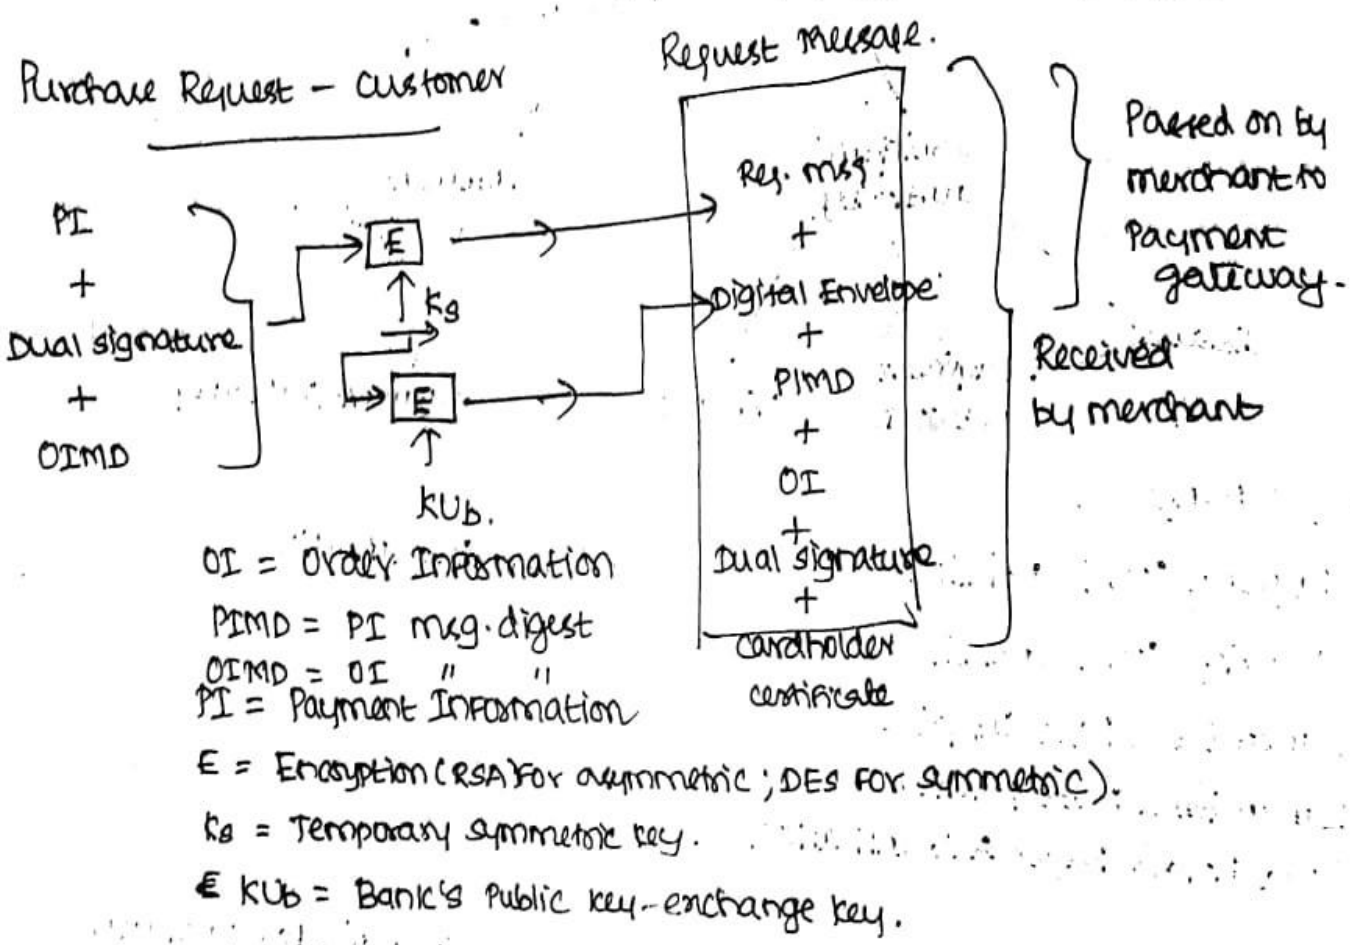 Request Message.
Purchase Request - Customer
PI
+
Dual signature
+
OIMD
E
Ks
E
KUb.
Req. msg
+
Digital Envelope
+
PIMD
+
OI
+
Dual signature
+
cardholder
certificate
Passed on by
merchant to
Payment
gateway.
Received
by merchant
OI = Order Information
PIMD = PI msg. digest
OIMD = OI " "
PI = Payment Information
E = Encryption (RSA for asymmetric ; DES for symmetric).
Ks = Temporary symmetric key.
KUb = Bank's Public key-exchange key.